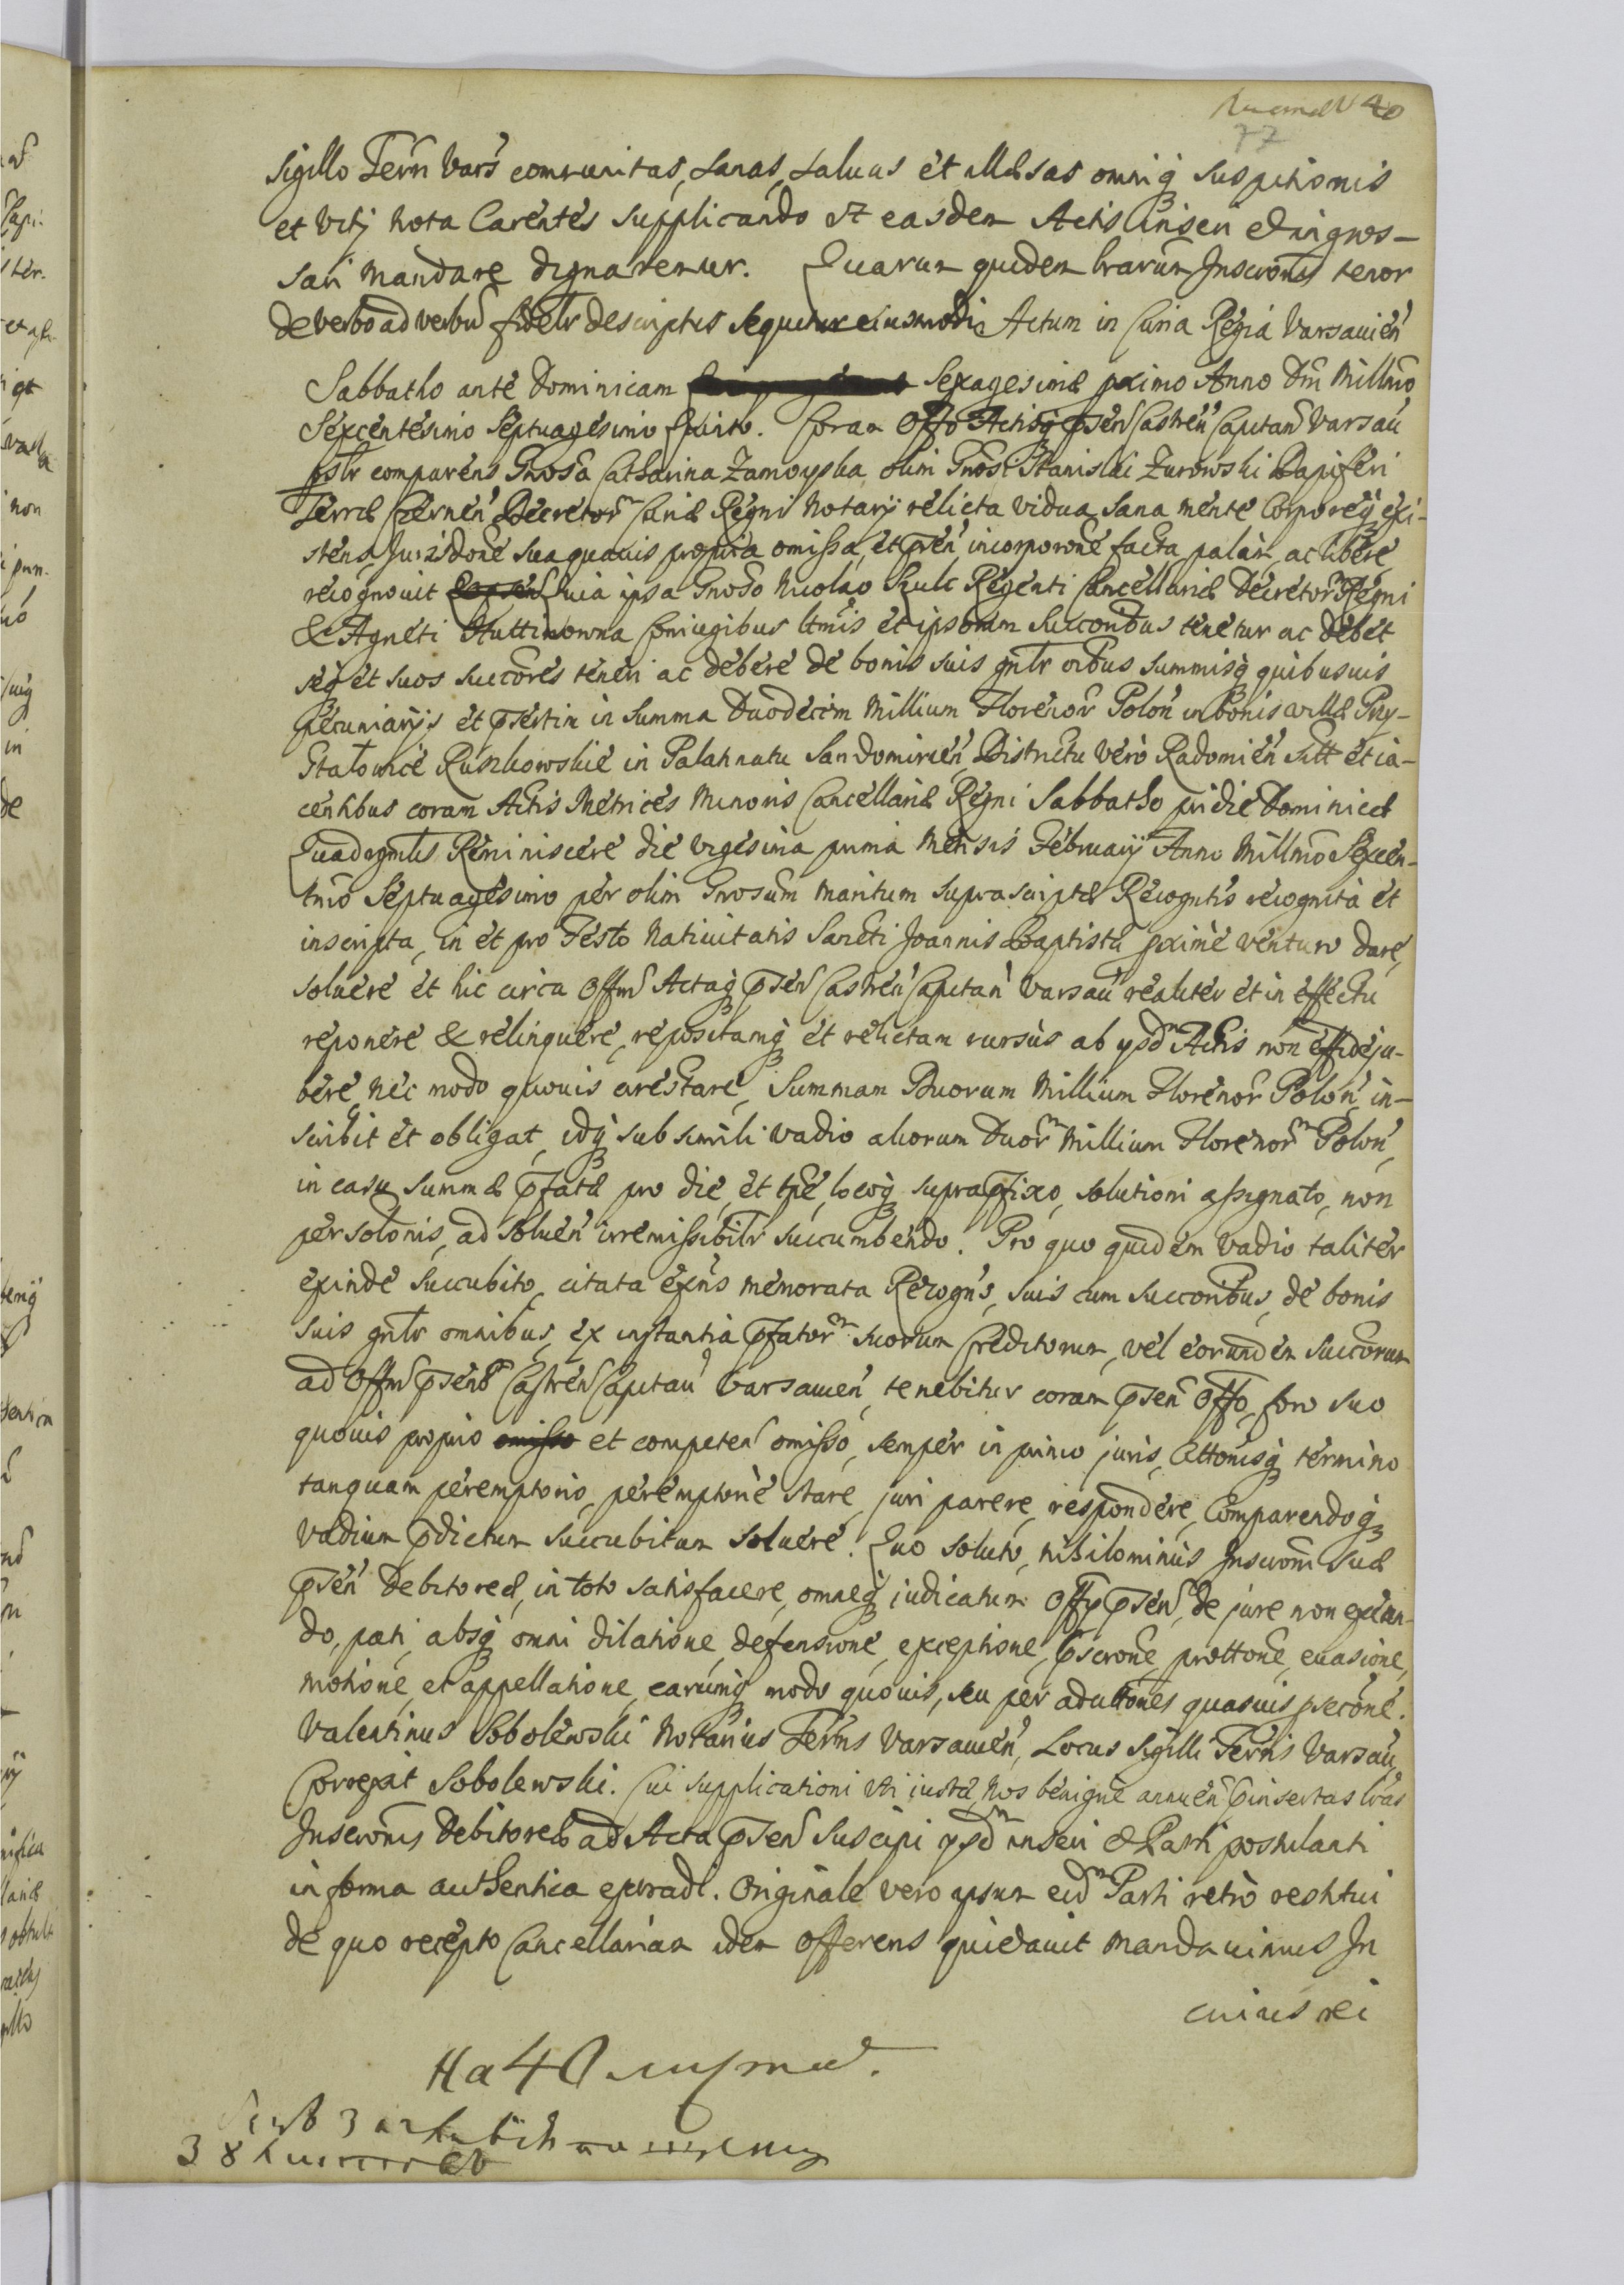 40
77
Sigillo Terrī Vars communitas, sanas, saluas et illæsas omniq; suspitionis
et vitij nota Carentes supplicando vt easdem Actis Inseri et ingros-
sari mandare dignaremur. Quarum quidem lrarum Inscronis tenor
de verbo ad verbū fidelr descriptus sequitur eiusmodi. Actum in Curia Regia Varsauien
Sabbatho ante Dominicam Sexagesimæ proximo Anno Dni Millmo
Sexcentesimo Septuagesimo Quinto. Coram Offo Actisq; psen Castren Capitan Varsau
pslr comparens Gnosa Catharina Zamoyska olim Gnosi Stanislai Zurowski Dapiferi
Terræ Czernen Decretor Curiæ Regni Notarij relicta vidua sana mente Corporeq; exi-
stens, Jurisdone sua quauis propria omissa, et psen incorporone facta palam, ac libere
recognouit Quia ipsa Gnoso Nicolao Szulc Regenti Cancellariæ Decretor Regni
& Agneti Huttinowna Coniugibus ltmis et ipsorum Succoribus tenetur ac debet
seq; et suos succores teneri ac debere de bonis suis gnlr oibus summisq; quibusuis
pecuniarijs et psertim in summa Duodecim Millium Florenor Polon in bonis villæ Przy-
stałowice Ruszkowskie in Palatinatu Sandomirien Districtu vero Radomien sitt et ia-
centibus coram Actis Metrices Minoris Cancellariæ Regni Sabbatho pridie Dominicæ
Quadraglis Reminiscere die vigesima prima Mensis February Anno Millmo Sexcen-
tmo Septuagesimo per olim Gnosum maritum suprascriptæ Recogntis recognita et
inscripta, in et pro Festo Natiuitatis Sancti Joannis Baptistæ proxime venturo dare,
soluere et hic circa Offm Actaq; psen Castren Capitan Varsau realiter et in effectu
reponere & relinquere, repositamq; et relictam rursus ab ysdm Actis non effideju-
bere, nec modo quouis arestare, Summam Duorum Millium Florenor Polon in-
scribit et obligat, idq; sub simili vadio aliorum Duorm Millium Florenorm Polon,
in casu summæ pfatæ pro die, et tpe, locoq; suprapfixo, solutioni assignato, non
persolonis, ad soluen irremissibilr succumbendo. Pro quo quidem Vadio taliter
exinde succubito, citata exns memorata Recogns, suis cum succoribus, de bonis
suis gnlr omnibus, ex instantia pfatorm suorum Creditorum, vel eorundem succorum
ad Offm psens Castren Capitan Varsauien, tenebitur coram psen Offo, foro suo
quouis proprio omisso et competen omisso, semper in primo juris, Cittonisq; termino
tanquam peremptorio, peremptorie stare, juri parere, respondere, Comparendoq;
Vadium pdictum succubitum soluere. Quo soluto, nihilominus Inscroni suæ
psen debitoreæ, in toto satisfacere, omneq; judicatum Offy psen, de jure non excan-
do, pati, absq; omni dilatione, defensione, exceptione, pscrone, prottone, euasione,
motione, et appellatione, earumq; modo quouis, seu per adultiones quasuis precone.
Valentinus Sobolewski Notarius Terrns Varsauien, Locus Sigilli Terrns Varsau,
Correxit Sobolewski. Cui supplicationi vti iustæ, Nos benigne annuen pinsertas lras
Inscronis debitoreæ ad Acta psen suscipi ysdm inseri & Parti postulanti
in forma authentica extradi. Originale vero ipsum eidm Parti retro restitui
de quo recepto Cancellariam idem Offerens quietauit mandauimus In
cuius rei